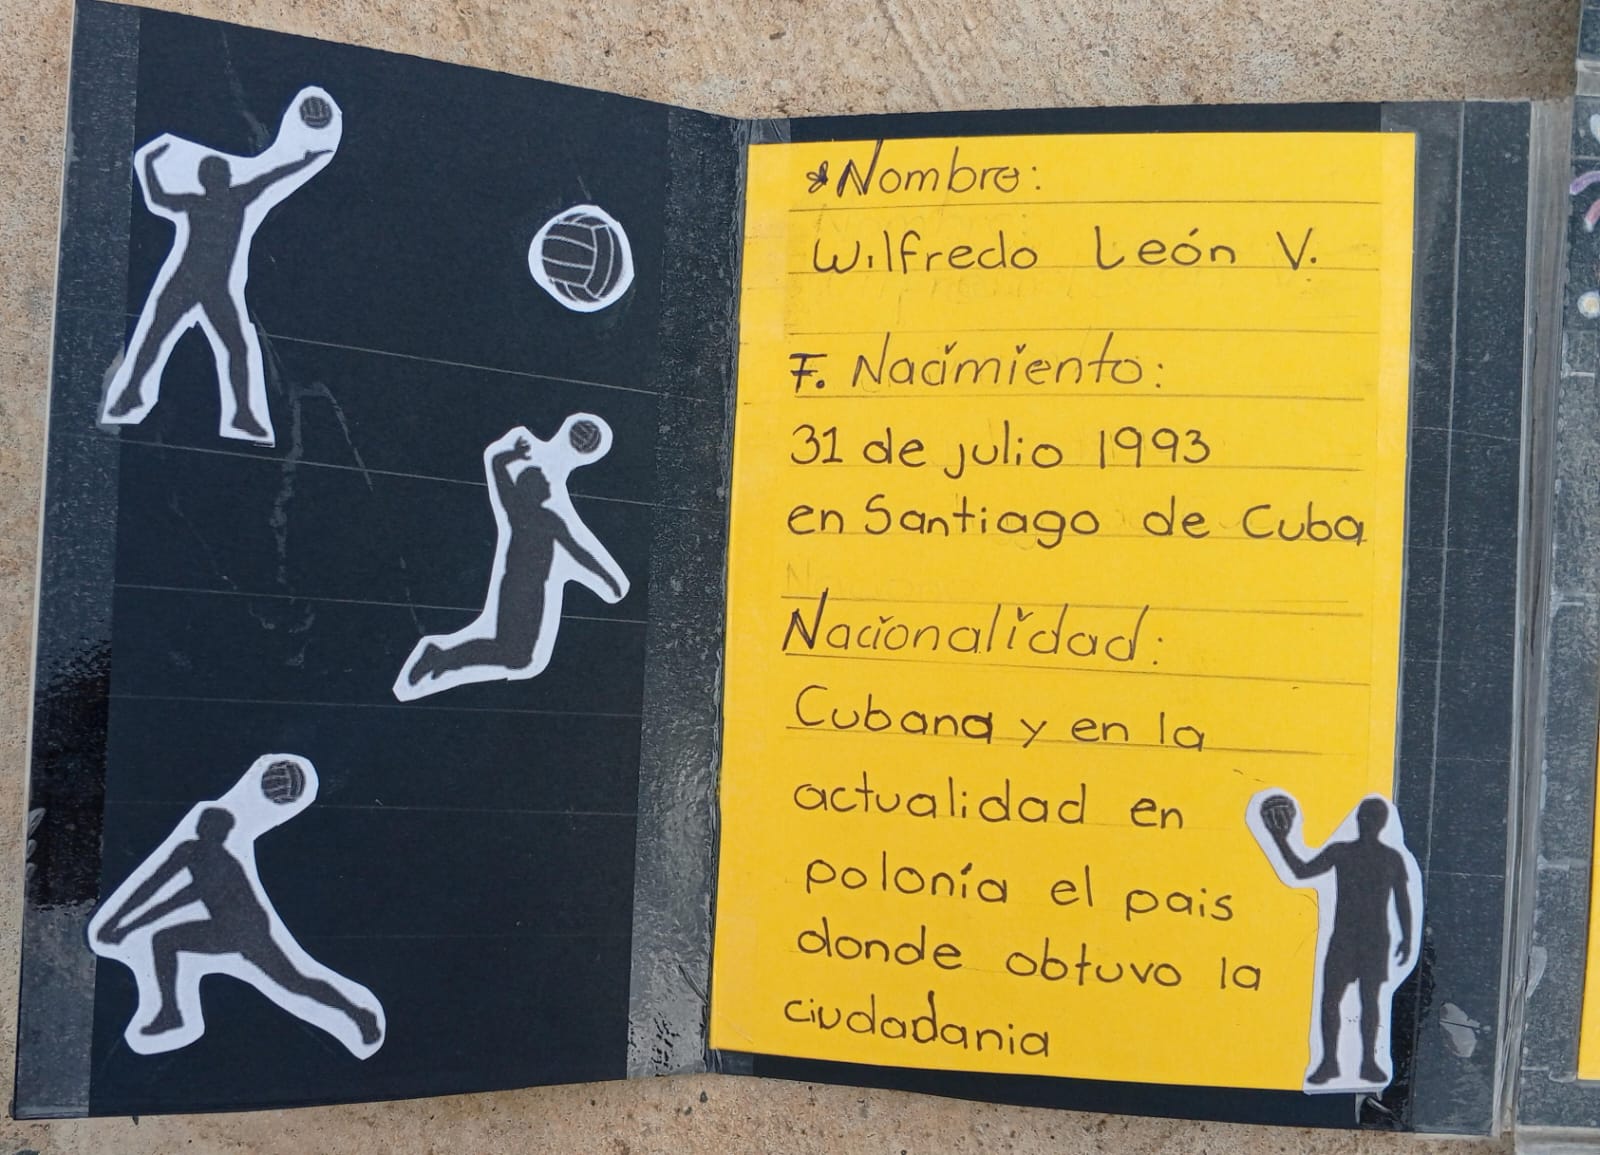 *Nombre:
Wilfredo León V.
F. Nacimiento:
31 de julio 1993
en Santiago de Cuba
Nacionalidad:
Cubana y en la
actualidad en
polonía el pais
donde obtuvo la
ciudadania